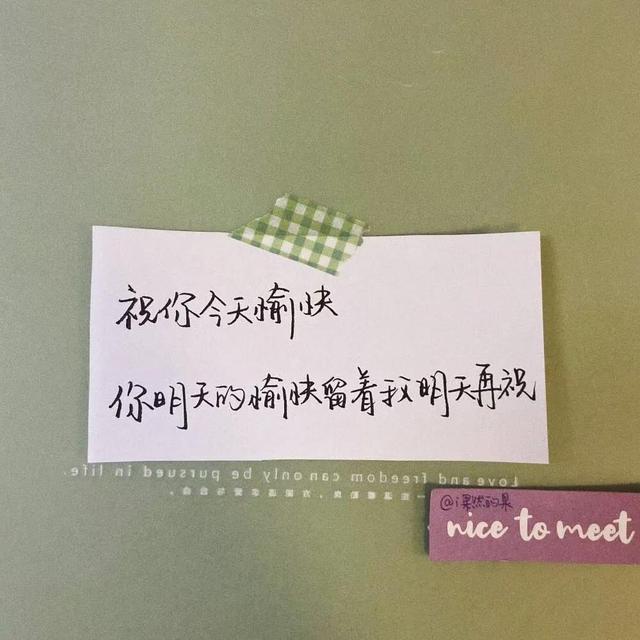 祝你今天愉快
你明天的愉快留着我明天再祝
Love and freedom can only be pursued in life.
@i果然的果
nice to meet